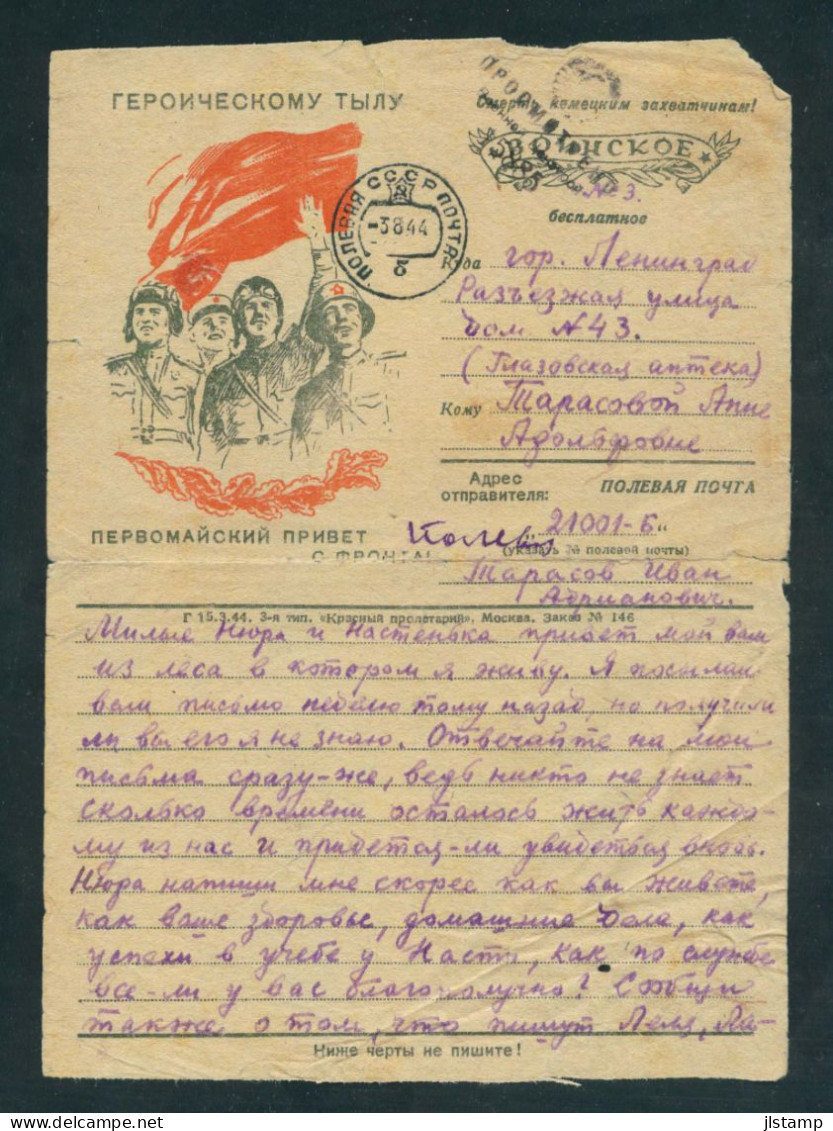 ГЕРОИЧЕСКОМУ ТЫЛУ
ПЕРВОМАЙСКИЙ ПРИВЕТ
С ФРОНТА!
ПОЛЕВАЯ СССР ПОЧТА
-3 8 44
б
Смерть немецким захватчикам!
ВОИНСКОЕ
№ 3.
бесплатное
Куда гор. Ленинград
Разъезжая улица
дом N 43.
(Глазовская аптека)
Кому Тарасовой Анне
Адольфовне
Адрес
отправителя: ПОЛЕВАЯ ПОЧТА
„21001-Б“
(указать № полевой почты)
Тарасов Иван
Адрианович.
Г 15.3.44. 3-я тип. «Красный пролетарий», Москва. Заказ № 146
Милые Нюра и Настенька привет мой вам
из леса в котором я живу. Я посылал
вам письмо неделю тому назад, но получили
ли вы его я не знаю. Отвечайте на мои
письма сразу-же, ведь никто не знает
сколько времени осталось жить каждо-
му из нас и придется-ли увидеться вновь.
Нюра напиши мне скорее как вы живете,
как ваше здоровье, домашние дела, как
успехи в учебе у Насти, как по службе
все-ли у вас благополучно? Сообщи
также о том, что пишут Леля, Ла-
Ниже черты не пишите!
jlstamp